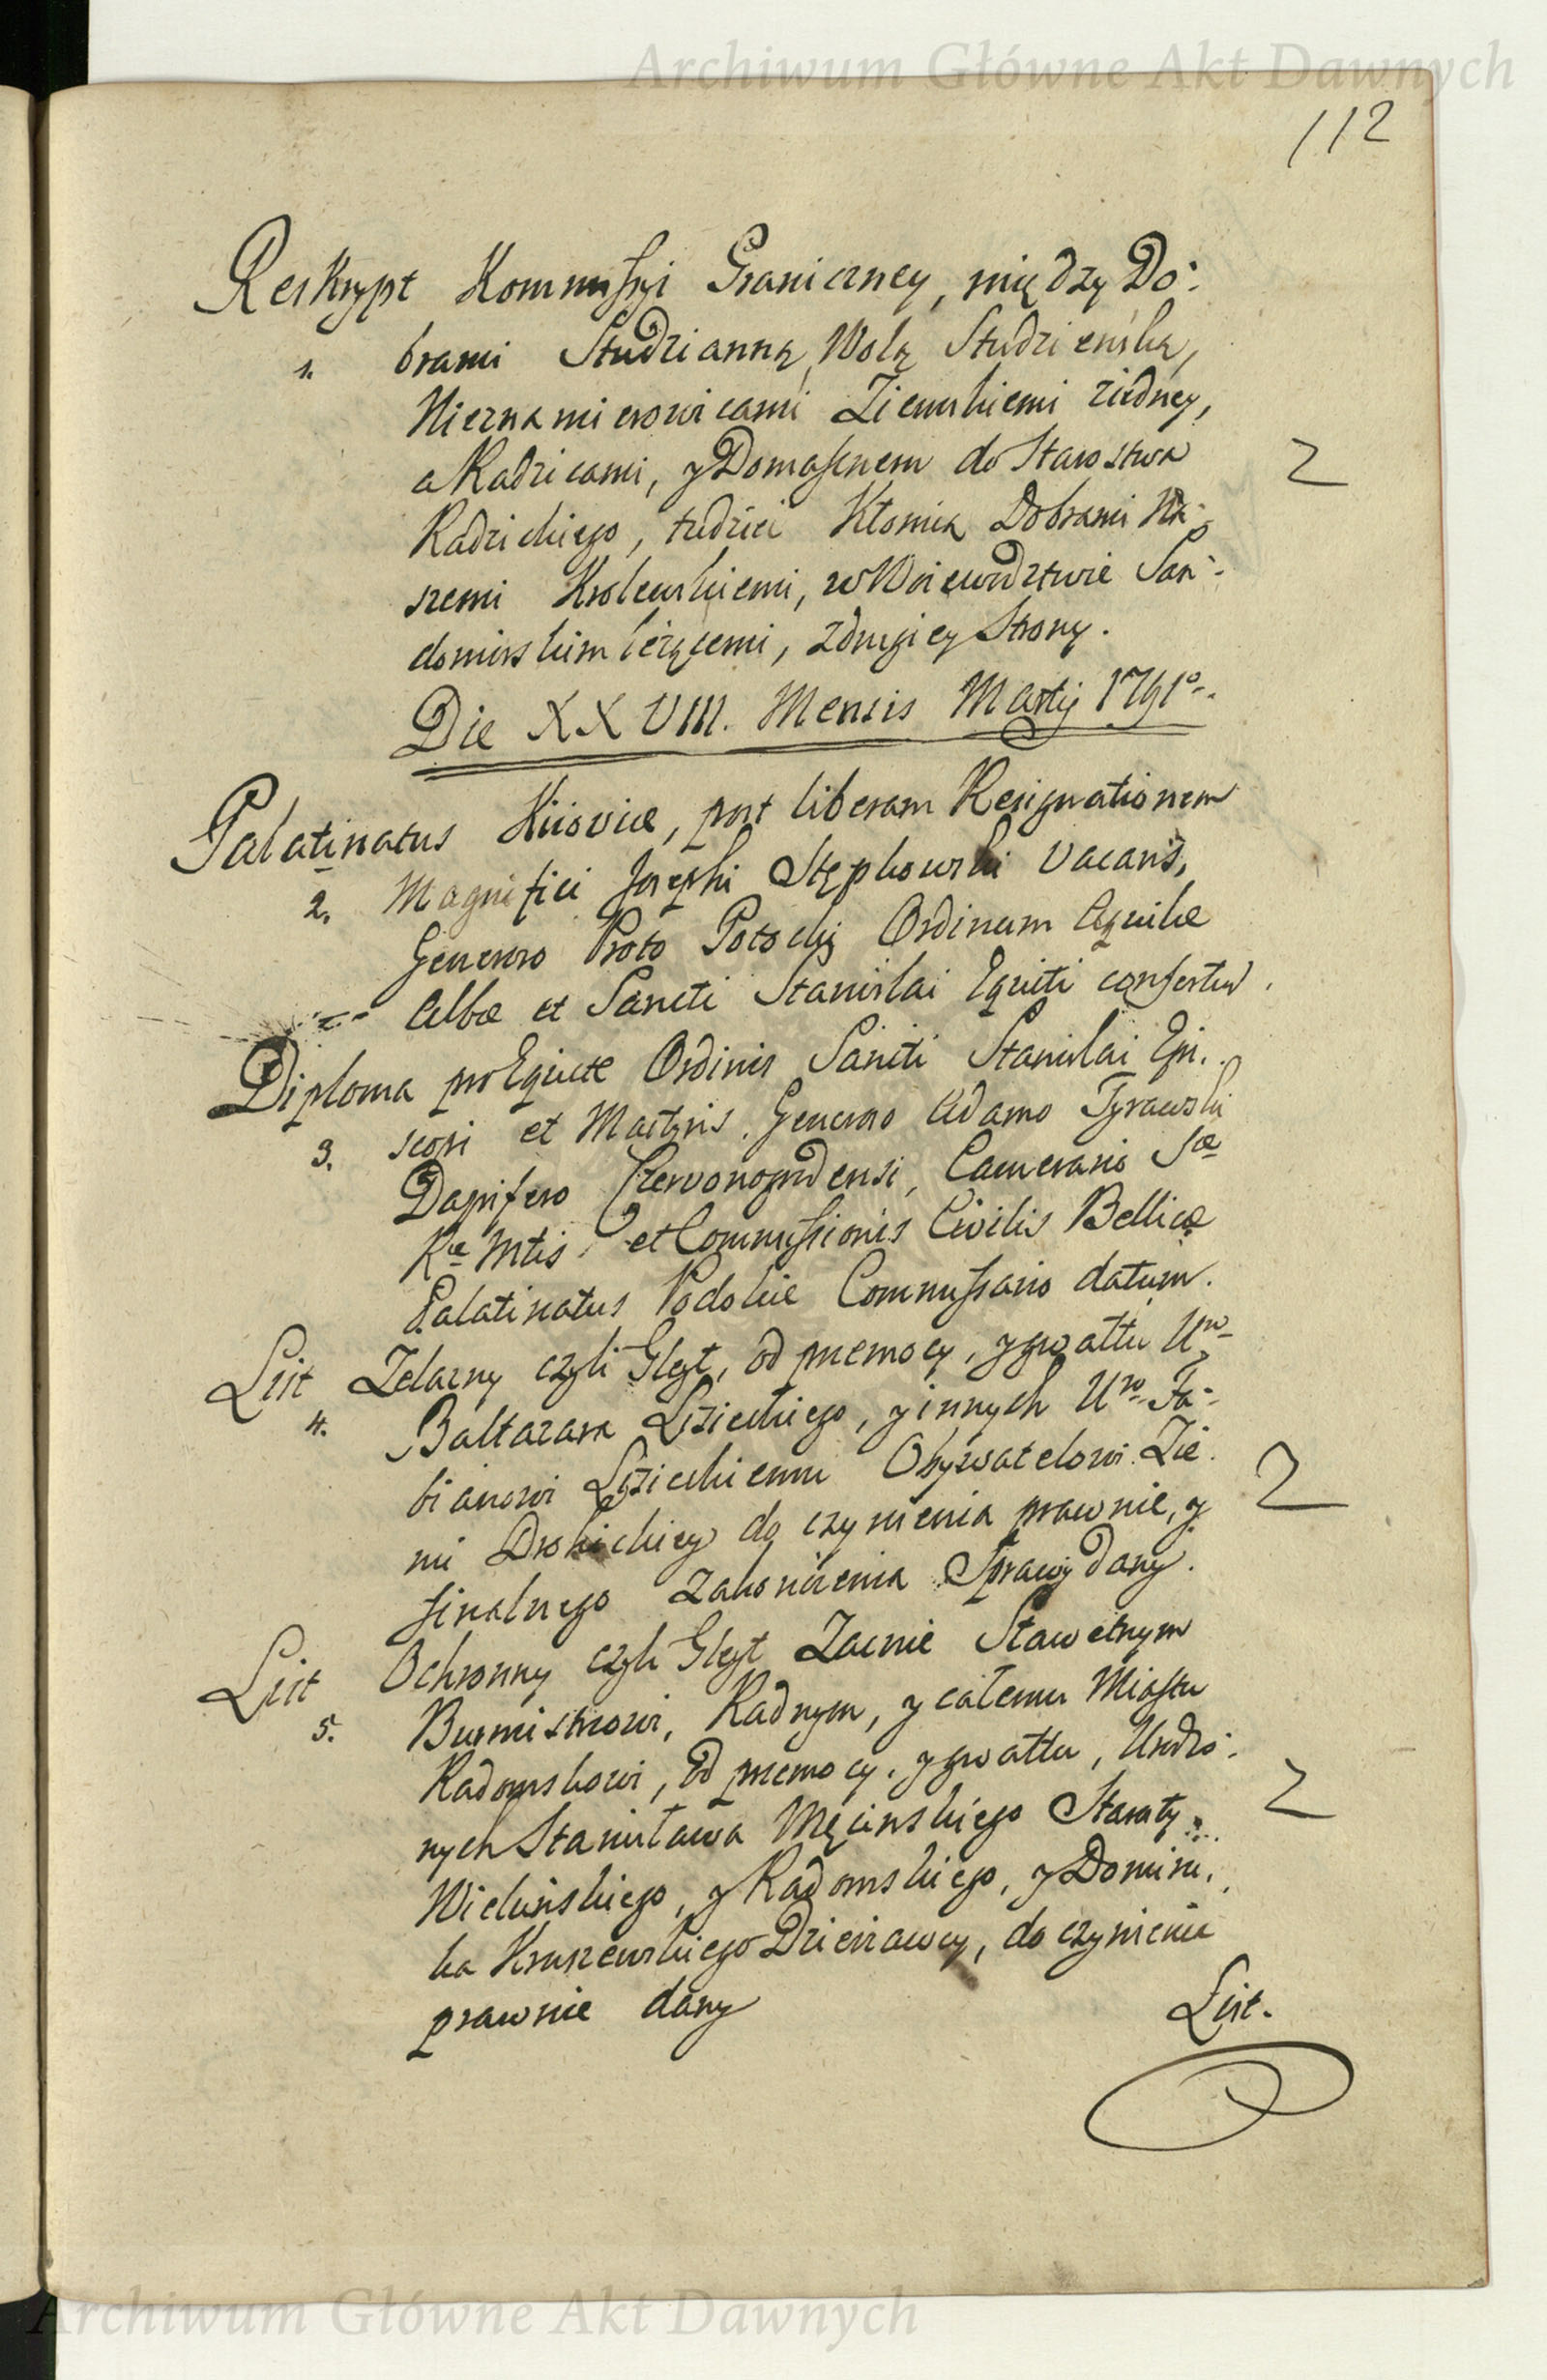 Archiwum Główne Akt Dawnych
112
Reskrypt Kommissyi Graniczney, między Do:
1. brami Studzianną, Wolą Studzieńską,
Nieznamierowicami Ziemskiemi ziedney,
a Radzicami, y Domasznem do Starostwa
Radzickiego, tudzież Kłonią Dobrami Na:
szemi Krolewskiemi, w Woiewodztwie San:
domirskim leżącemi, zdrugiey Strony.
Die XXVIII. Mensis Martij 1791o
Palatinatus Kijoviæ, post liberam Resignationem
2. Magnifici Josephi Stępkowski vacans,
Generoso Proto Potocki Ordinum Aquilæ
Albæ et Sancti Stanislai Equiti confertur.
Diploma pro Equite Ordinis Sancti Stanislai Epi:
3. scopi et Martyris. Generoso Adamo Tyrawski
Dapifero Czervonogrodensi, Camerario Sæ
Ræ Mtis et Commissionis Civilis Bellicæ
Palatinatus Podoliæ Commissario datum.
List Zelazny czyli Gleyt, od przemocy, y gwałtu Uro
4. Baltazara Lisieckiego, y innych Uro Fa:
bianowi Lisieckiemu Obywatelowi Zie:
mi Drohickiey do czynienia prawnie, y
finalnego zakończenia Sprawy dany.
List Ochronny czyli Gleyt Zacnie Sławetnym
5. Burmistrzowi, Radnym, y całemu Miastu
Radomskowi, od przemocy, y gwałtu, Urodzo:
nych Stanisława Męcinskiego Starosty
Wieluńskiego, y Radomskiego, y Domini:
ka Kraszewskiego Dzierzawcy, do czynienia
prawnie dany
List.
2
2
2
Archiwum Główne Akt Dawnych